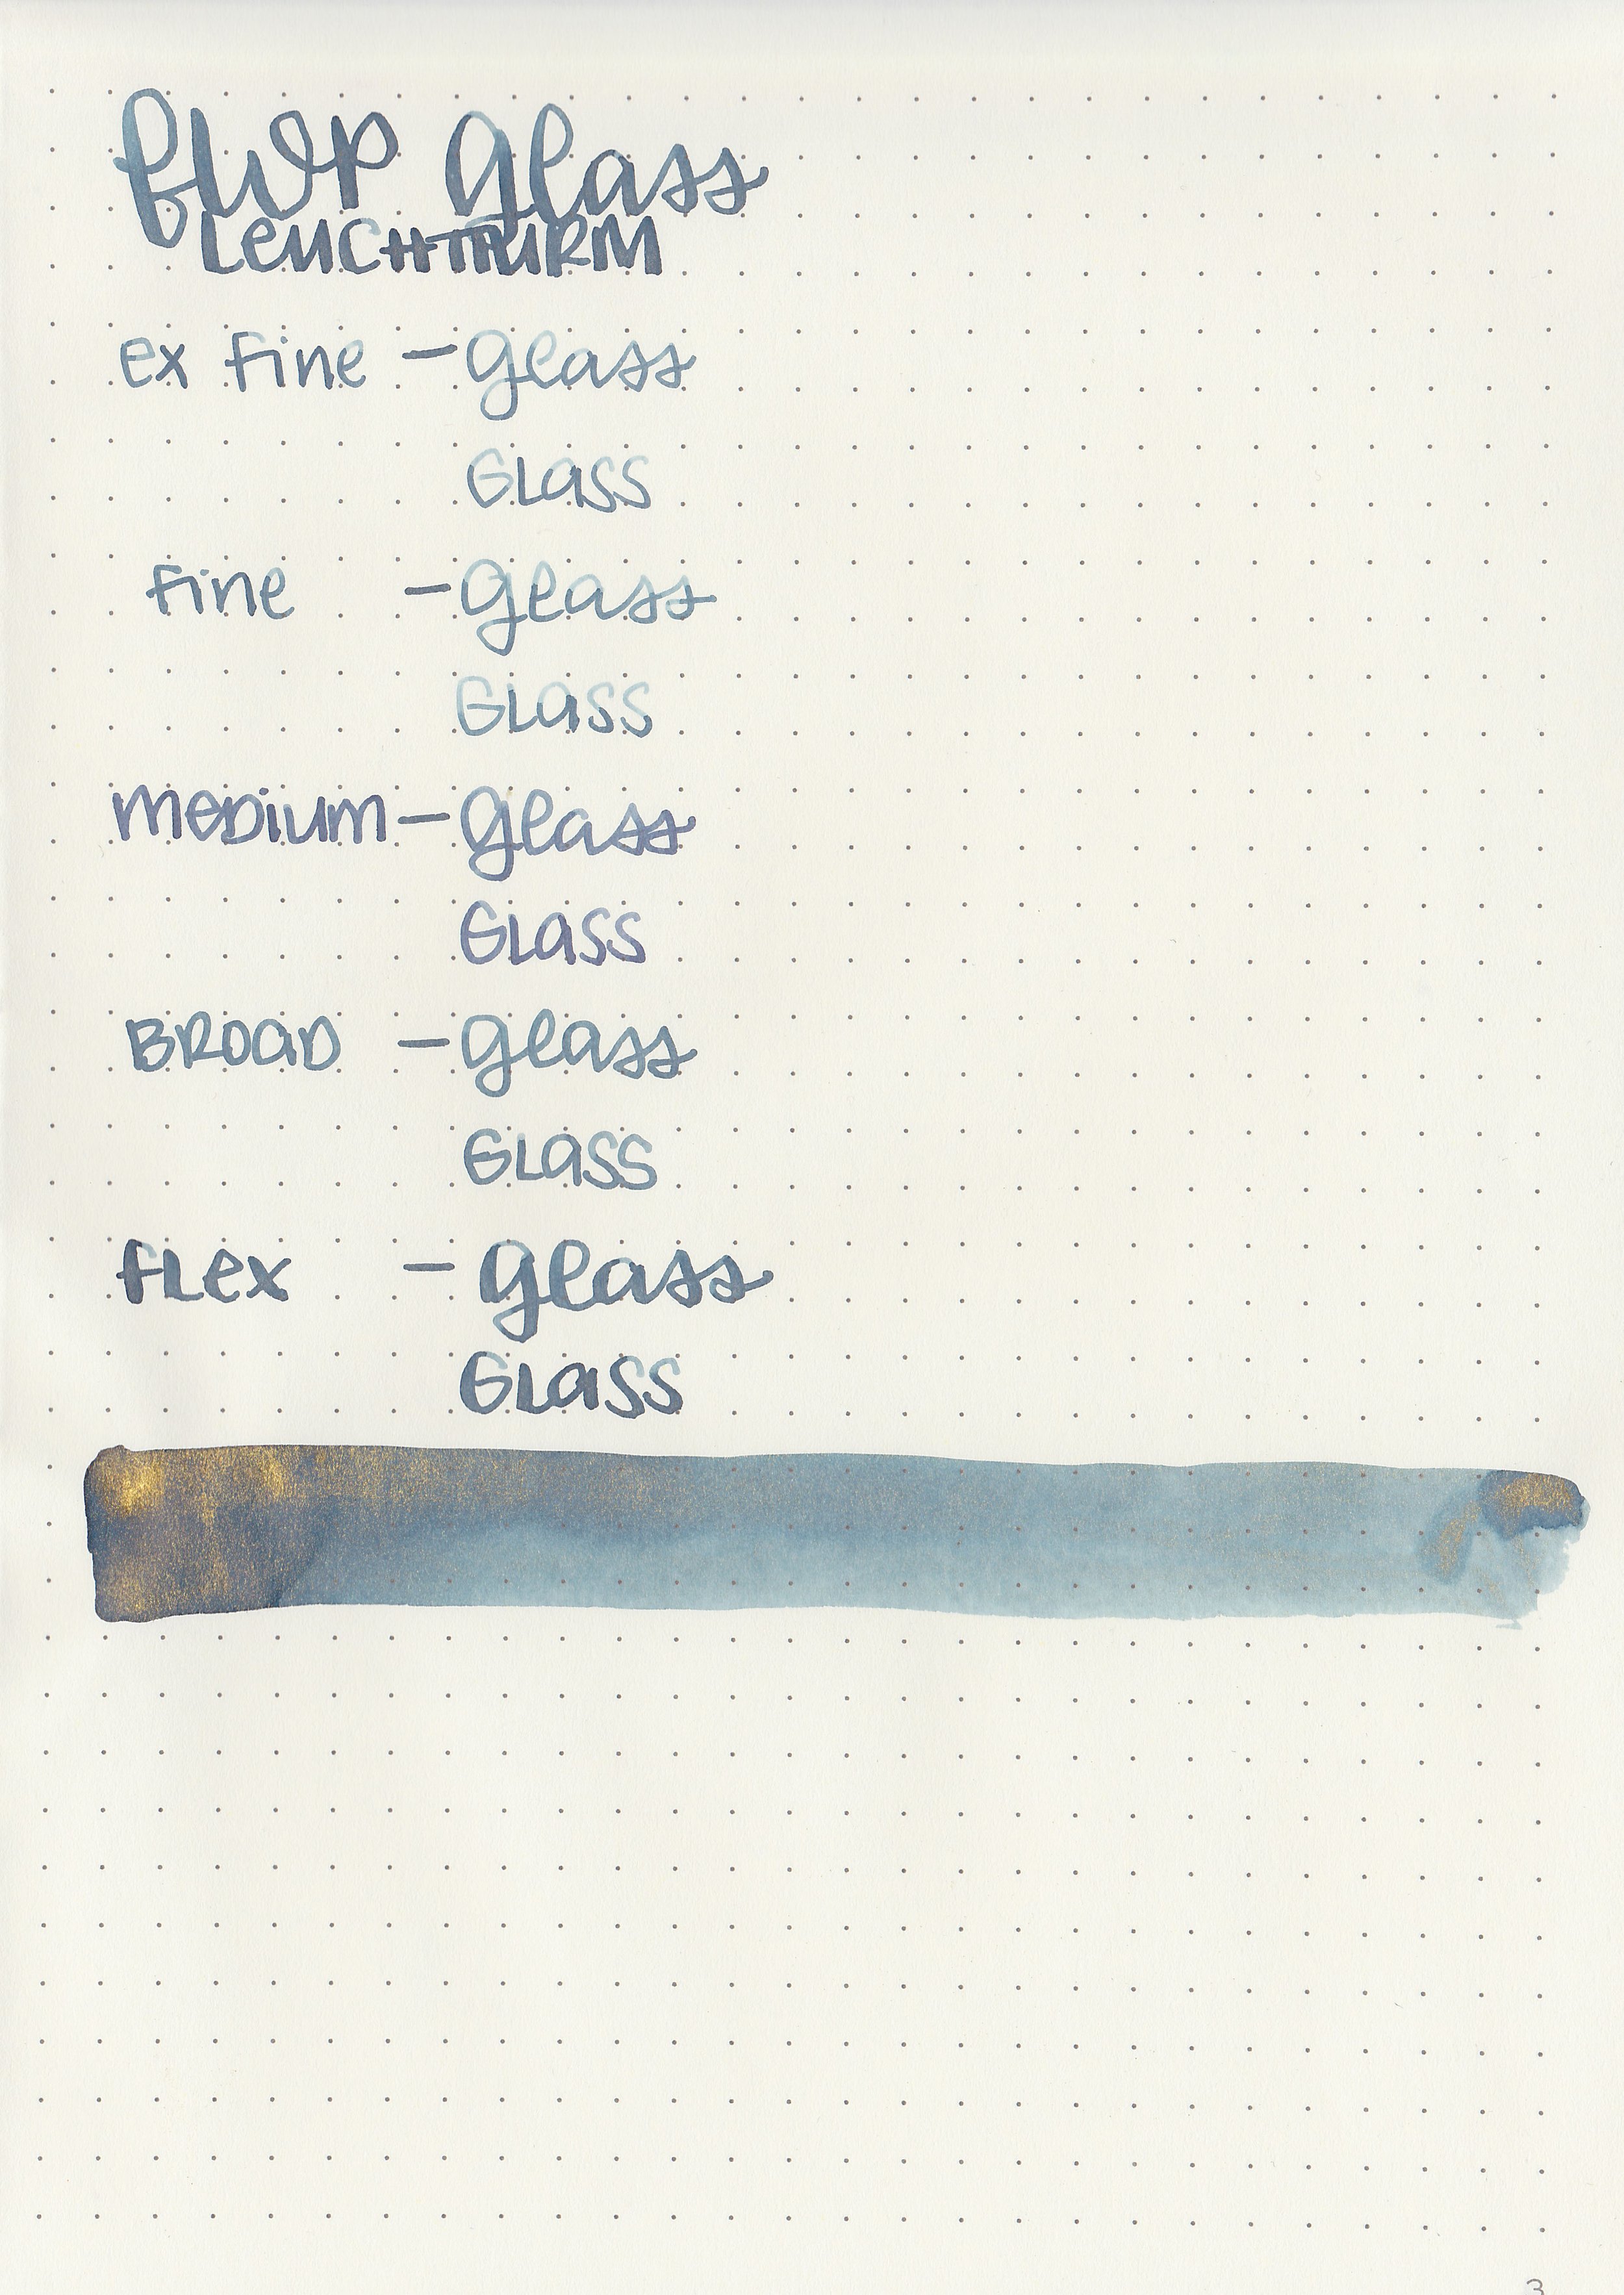 FWP Glass
LEUCHTTURM
ex fine - glass
GLASS
fine - glass
GLASS
MEDIUM - glass
GLASS
BROAD - glass
GLASS
FLEX - glass
GLASS
3